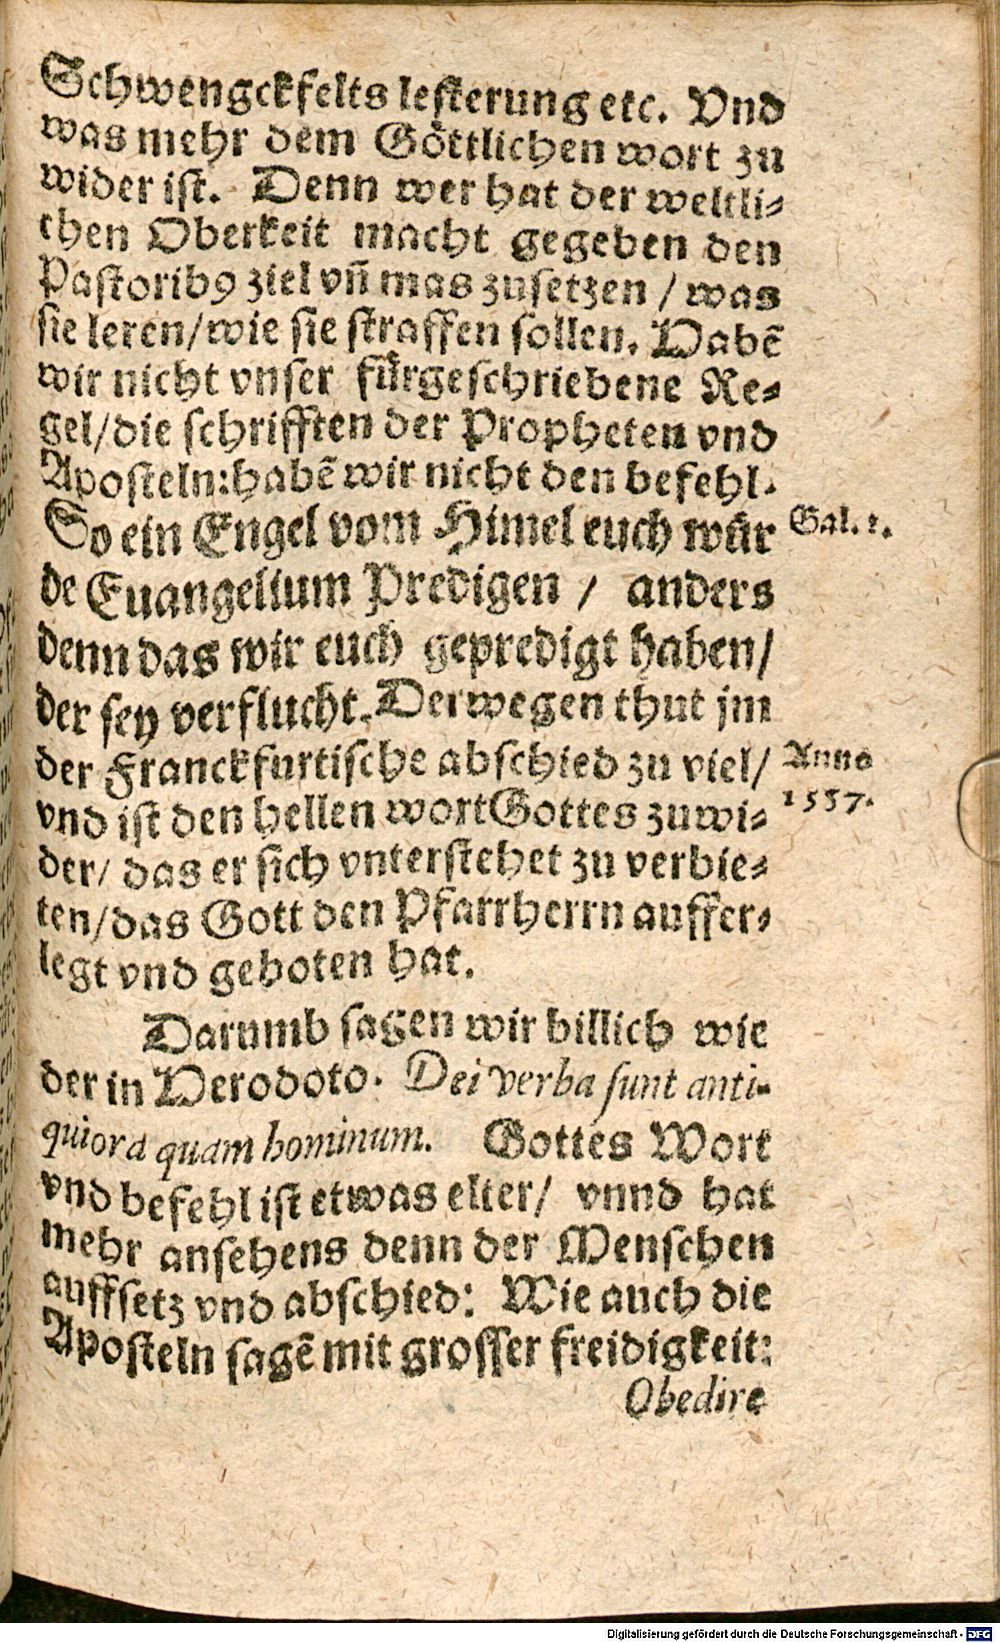 Schwengckfelts lesterung etc. Vnd
was mehr dem Göttlichen wort zu
wider ist. Denn wer hat der weltli-
chen Oberkeit macht gegeben den
Pastoribꝰ ziel vñ mas zusetzen / was
sie leren/wie sie straffen sollen. Habẽ
wir nicht vnser fürgeschriebene Re-
gel/die schrifften der Propheten vnd
Aposteln: habẽ wir nicht den befehl.
So ein Engel vom Himel euch wür
de Euangelium Predigen / anders
denn das wir euch gepredigt haben/
der sey verflucht. Derwegen thut jm
der Franckfurtische abschied zu viel/
vnd ist den hellen wort Gottes zuwi-
der/ das er sich vnterstehet zu verbie-
ten/das Gott den Pfarrherrn auffer-
legt vnd geboten hat.
Gal. 1.
Anno
1557.
Darumb sagen wir billich wie
der in Herodoto. Dei verba sunt anti-
quiora quam hominum. Gottes Wort
vnd befehl ist etwas elter/ vnnd hat
mehr ansehens denn der Menschen
auffsetz vnd abschied: Wie auch die
Aposteln sagẽ mit grosser freidigkeit:
Obedire
Digitalisierung gefördert durch die Deutsche Forschungsgemeinschaft - DFG